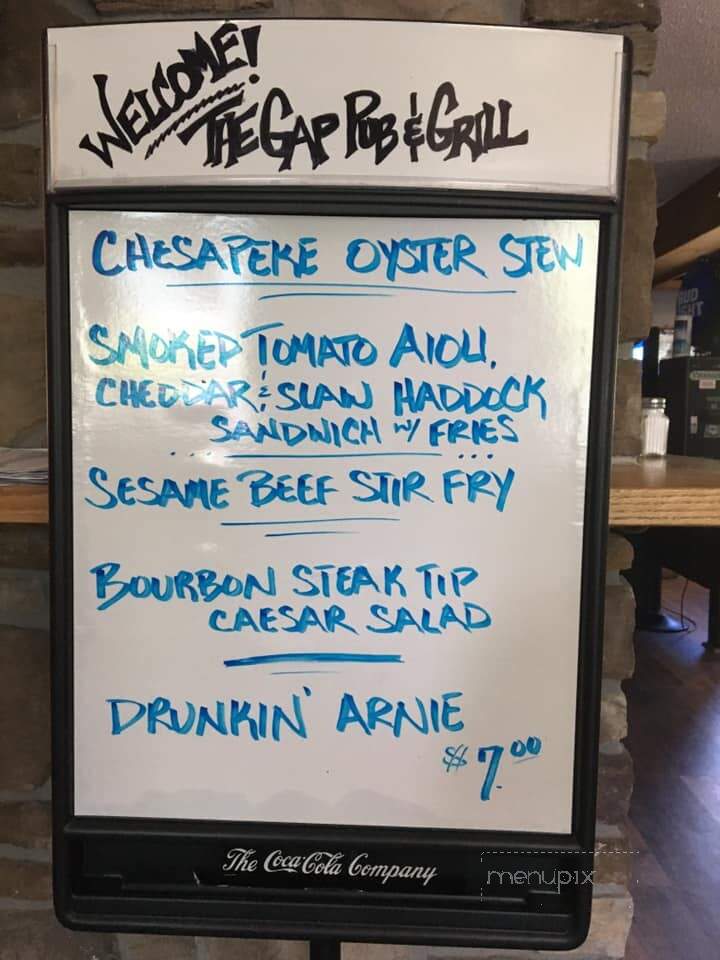 WELCOME!
THE GAP PUB & GRILL
CHESAPEKE OYSTER STEW
SMOKED TOMATO AIOLI,
CHEDDAR & SLAW HADDOCK
SANDWICH W/ FRIES
SESAME BEEF STIR FRY
BOURBON STEAK TIP
CAESAR SALAD
DRUNKIN' ARNIE
$7.00
The Coca-Cola Company
menupix
BUD